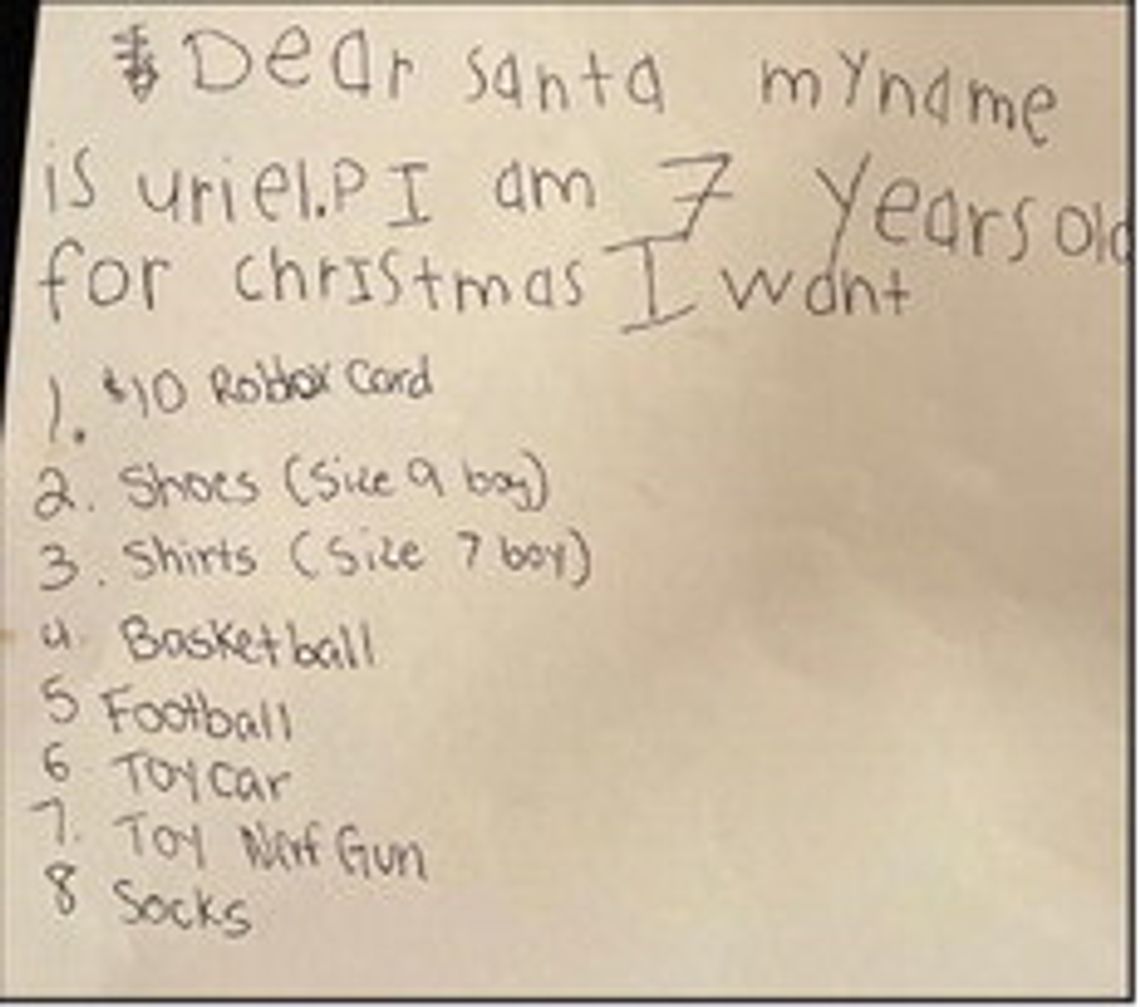 Dear santa my name
is uriel.P I am 7 years old
for christmas I want
1. $10 Roblox Card
2. Shoes (Size 9 boy)
3. Shirts (Size 7 boy)
4. Basketball
5 Football
6 Toy car
7. Toy Nerf Gun
8 Socks